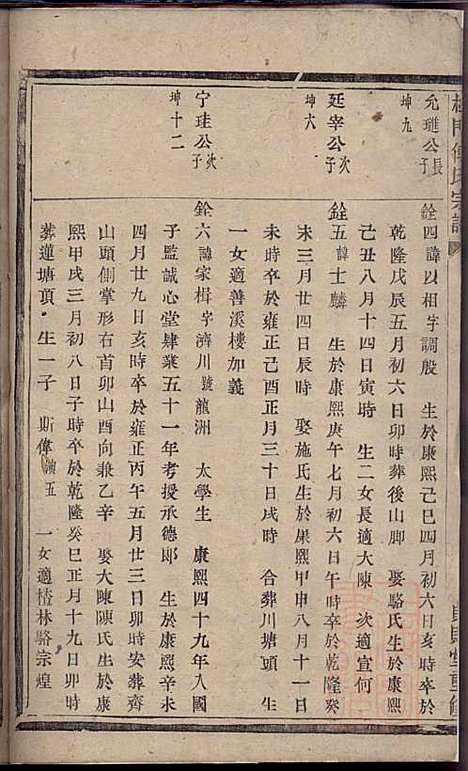 允璡公長子
坤九
銓四諱以相字調殷 生於康熙己巳四月初六日亥時卒於
乾隆戊辰五月初六日卯時葬後山脚 娶駱氏生於康熙
己丑八月十四日寅時 生二女長適大陳 次適宣何
廷宰公次子
坤六
銓五諱士麟 生於康熙庚午七月初六日午時卒於乾隆癸
未三月廿四日辰時 娶施氏生於康熙甲申八月十一日
未時卒於雍正己酉正月三十日戌時 合葬川塘頭 生
一女適善溪樓加義
宁珪公次子
坤十二
銓六諱家楫字濟川號龍洲 太學生 康熙四十九年入國
子監誠心堂肄業五十一年考授承德郎 生於康熙辛未
四月廿九日亥時卒於雍正丙午五月廿三日卯時安葬齊
山頭側掌形右首卯山酉向兼乙辛 娶大陳陳氏生於康
熙甲戌三月初八日子時卒於乾隆癸巳正月十九日卯時
葬蓮塘頂 生一子 斯偉演五 一女適楂林駱宗煌